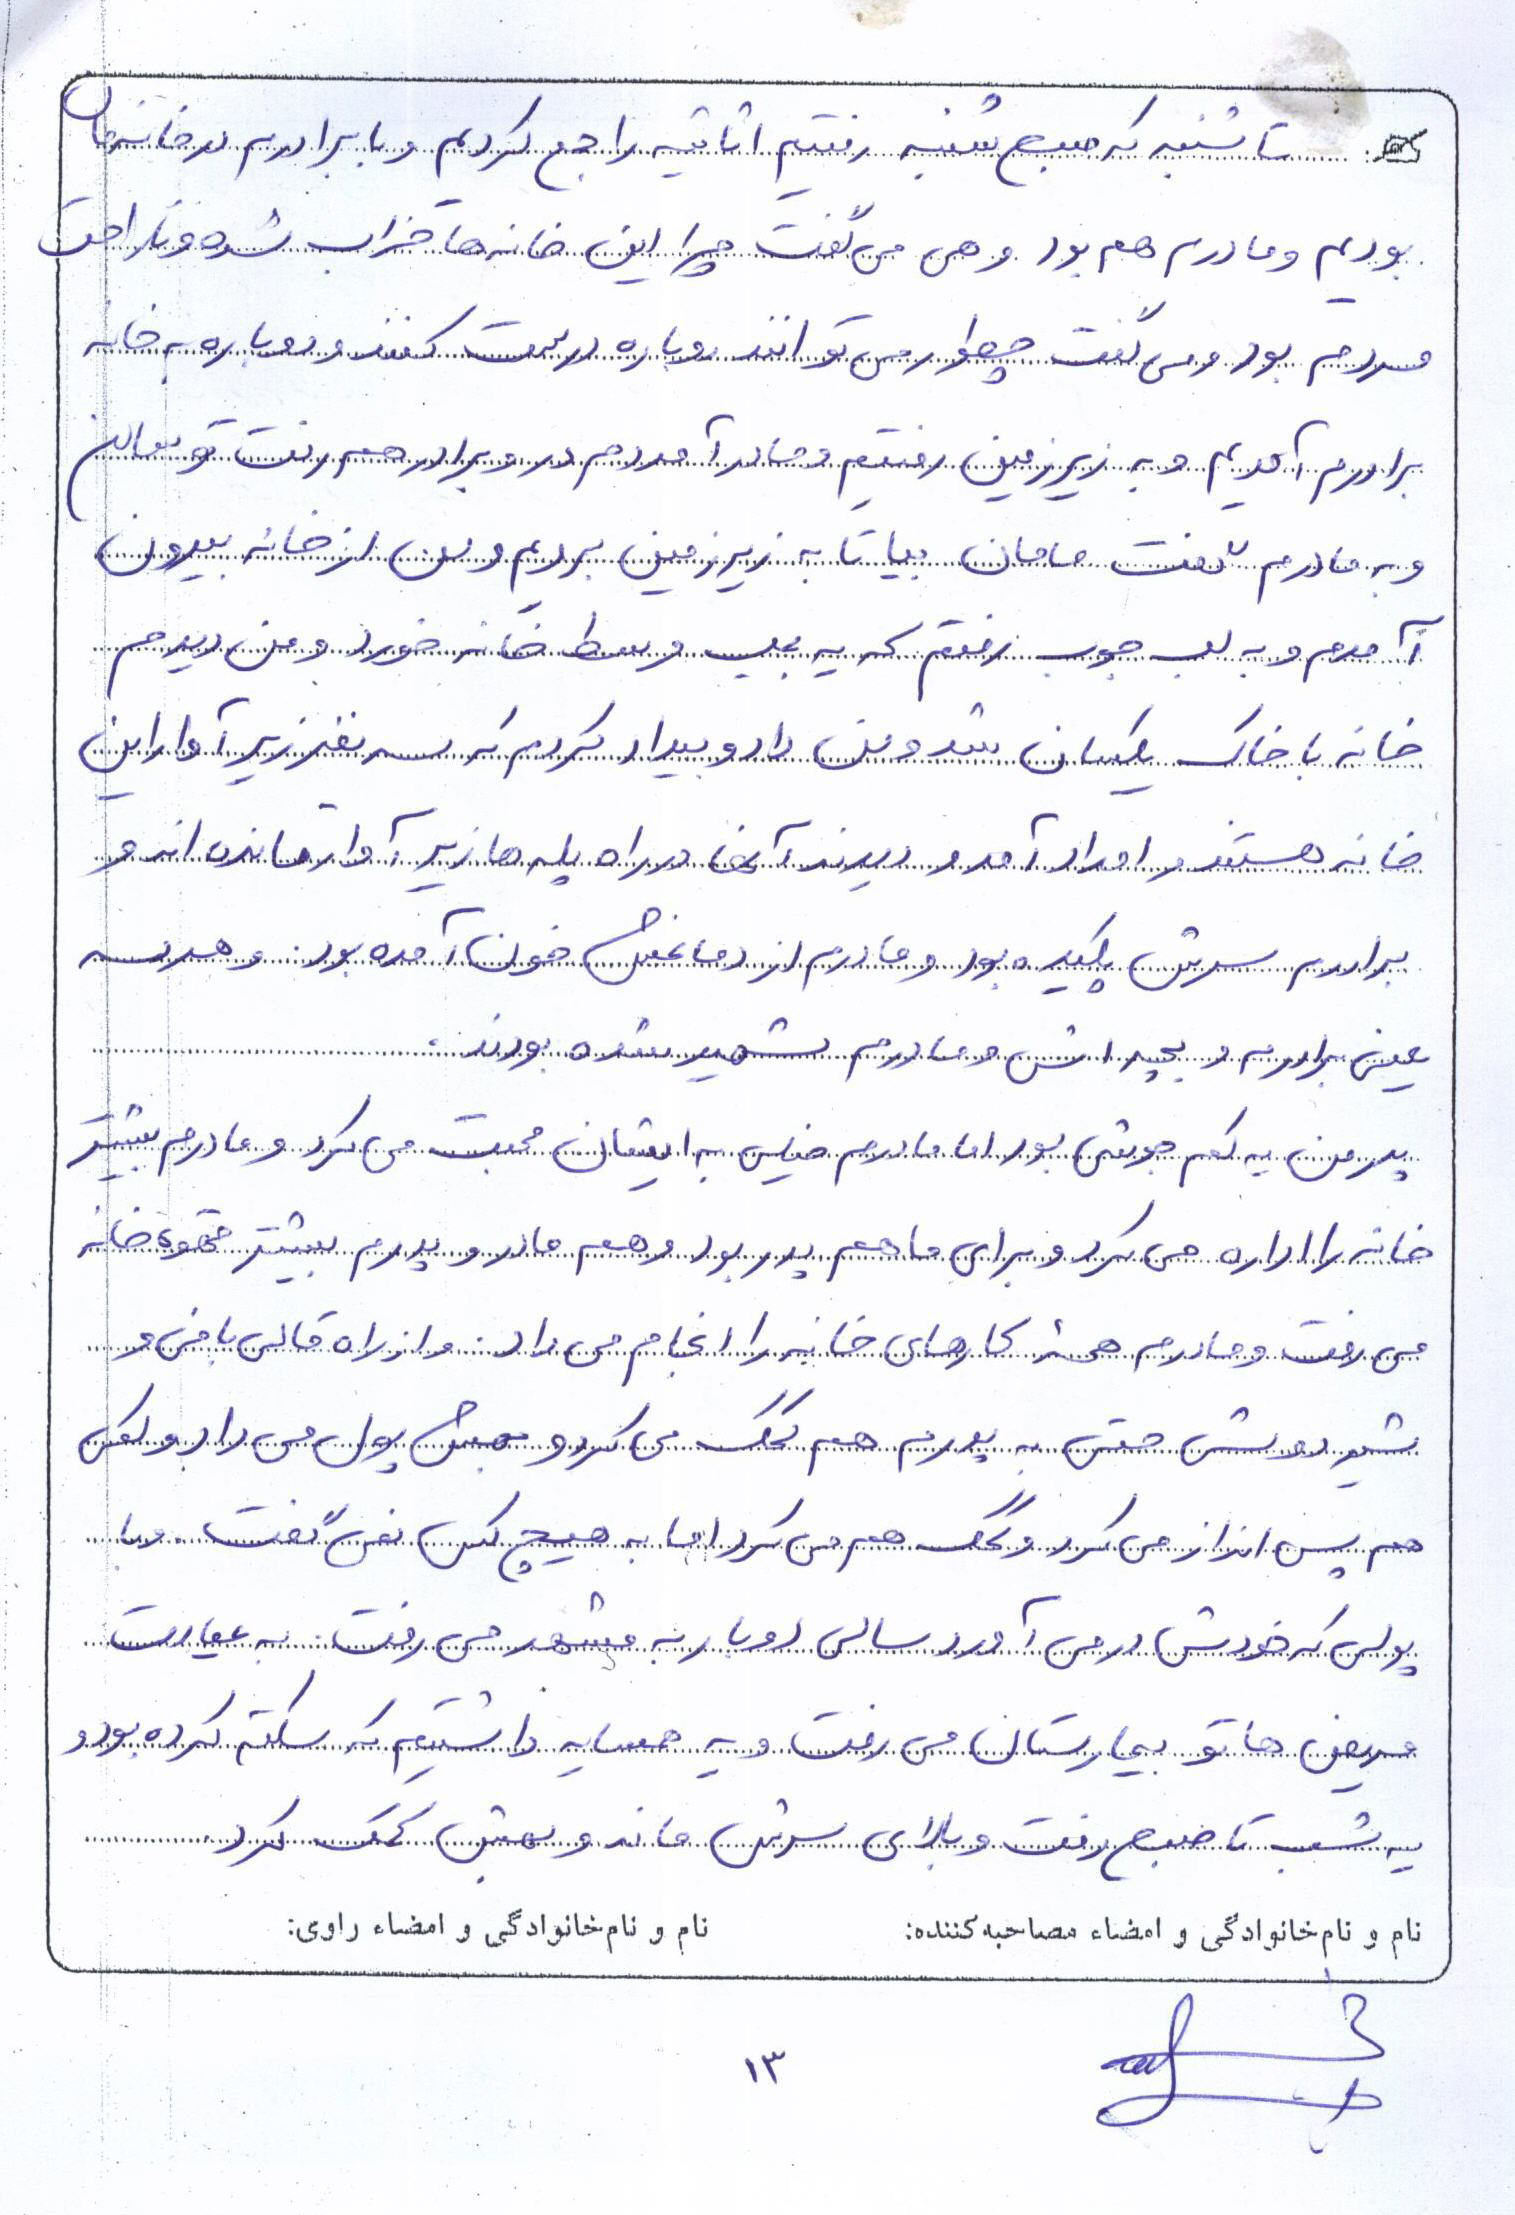 تا شنبه که صبح شنبه رفتیم اثاثیه را جمع کردیم و با برادرم در خانه مان
بودیم و مادرم هم بود و هی می گفت چرا این خانه ها خراب شده و ناراحت
مردم بود و می گفت چطور می توانند دوباره درست کنند و دوباره به خانه
برادرم آمدیم و به زیرزمین رفتیم و مادر آمد دم در و برادر هم رفت تو سالن
و به مادرم گفت مامان بیا تا به زیرزمین برویم و من از خانه بیرون
آمدم و به لب جوب رفتم که یه بمب وسط خانه خورد و من دیدم
خانه با خاک یکسان شد و من داد و بیداد کردم که سه نفر زیر آوار این
خانه هستند و امداد آمد و دیدند آنها در راه پله ها زیر آوار مانده اند و
برادرم سرش پکیده بود و مادرم از دماغش خون آمده بود. و هر سه
یعنی برادرم و بچه اش و مادرم شهید شده بودند.
پدر من یه کم جوشی بود اما مادرم خیلی به ایشان محبت می کرد و مادرم بیشتر
خانه را اداره می کرد و برای ما هم پدر بود و هم مادر و پدرم بیشتر قهوه خانه
می رفت و مادرم همه کارهای خانه را انجام می داد. و از راه قالی بافی و
شیر دوشی حتی به پدرم هم کمک می کرد و بهش پول می داد و لعکی
هم پس انداز می کرد و کمک هم می کرد اما به هیچ کس نمی گفت. و با
پولی که خودش در می آورد سالی دوبار به مشهد می رفت. به عیادت
مریض ها تو بیمارستان می رفت و یه همسایه داشتیم که سکته کرده بود و
یه شب تا صبح رفت و بالای سرش ماند و بهش کمک کرد.
نام و نام خانوادگی و امضاء مصاحبه کننده: نام و نام خانوادگی و امضاء راوی:
۱۳